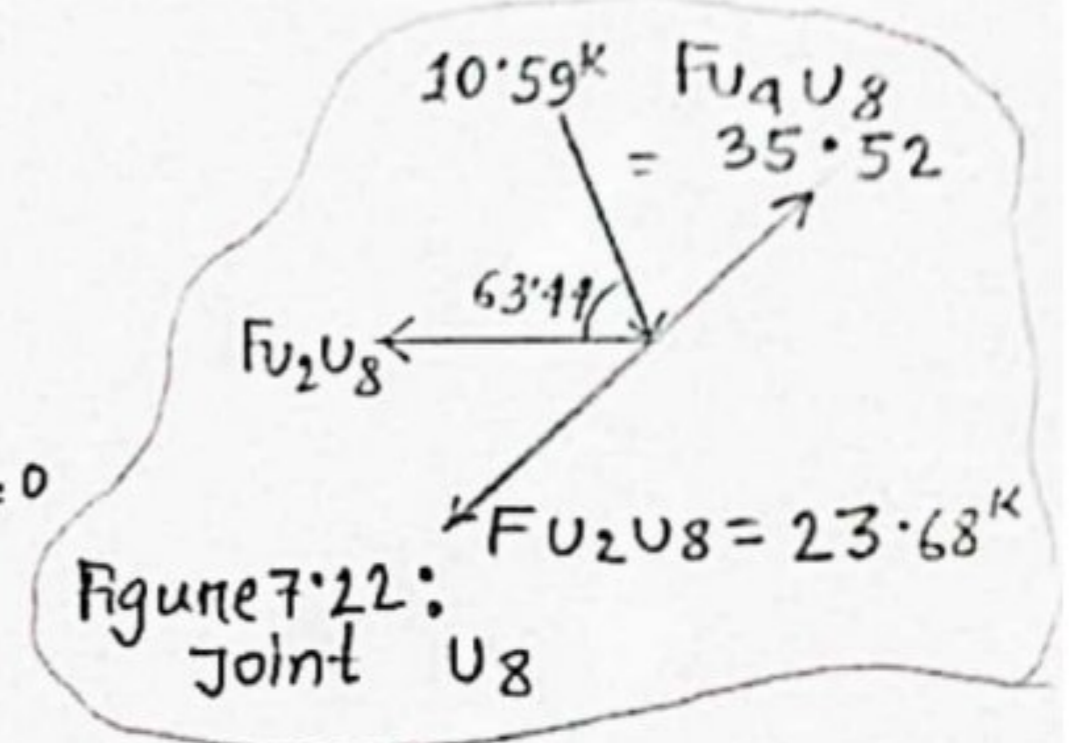 10.59ᴷ Fu₄U₈
= 35.52
63.44
Fu₂U₈
= 0
FU₂U8 = 23.68ᴷ
Figure 7.22:
Joint U8